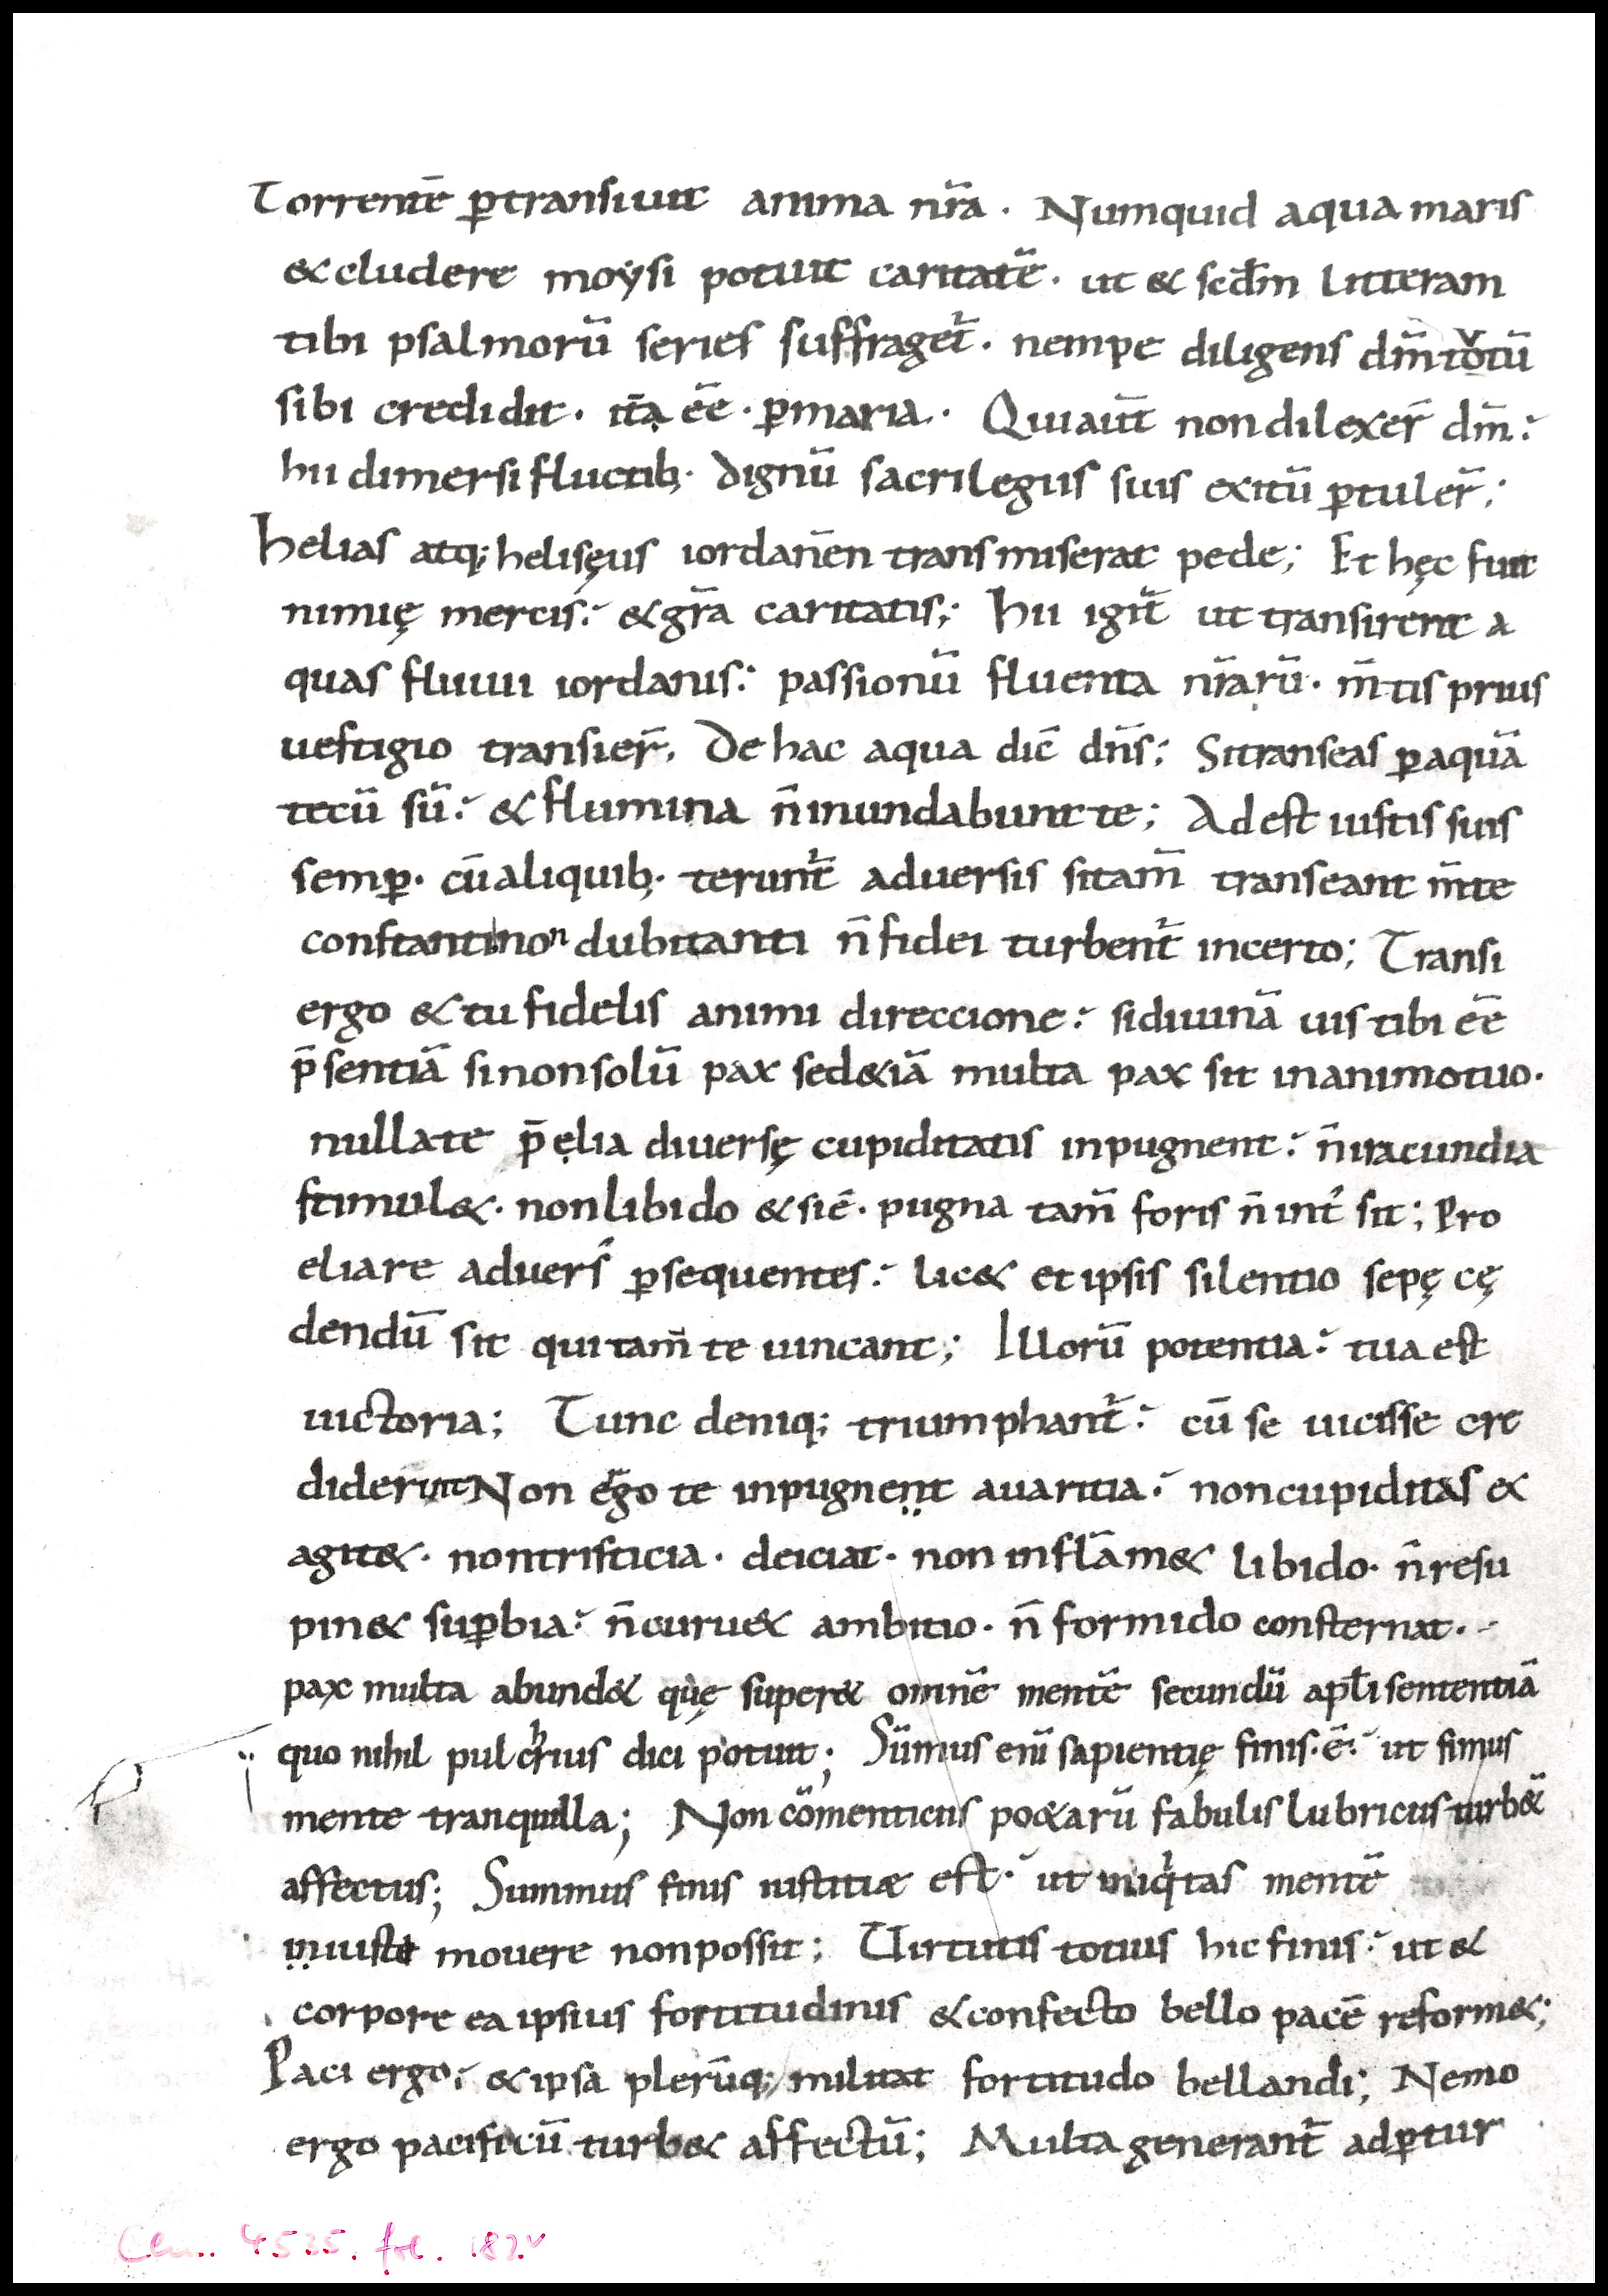 Torrentē ꝑtransiuit anima nr̄a. Numquid aqua maris
&cludere moẏsi potuit caritatē. ut & scd̄m litteram
tibi psalmorū series suffraget᷑. nempe diligens dm̄ totū
sibi credidit. ita ēē. ꝑmaria. Quiaut̄ non dilexer̄ dm̄:
hii dimersi fluctib;. dignū sacrilegiis suis exitū ꝑtuler̄;
helias atq; helisęus iordan̄en transmiserat pede; Et hęc fuit
nimię mercis: & gr̄a caritatis; hii igit᷑ ut transirent a
quas fluuii iordanis: passionū fluenta nr̄arū. m̄tis prius
uestigio transier̄. De hac aqua dic̄ dn̄s; Sitranseas ꝑaquā
tecū sū: & flumina n̄inundabunt te; Adest iustis suis
semꝑ. cūaliquib;. terunt᷑ aduersis sitam̄ transeant m̄te
constanti non dubitanti n̄fidei turbent᷑ incerto; Transi
ergo & tu fidelis animi direccione: siduuinā uis tibi ēē
p̄sentiā sinonsolū pax sed&iā multa pax sit inanimotuo.
nullate p̄ęlia diuersę cupiditatis inpugnent: n̄iracundia
stimul&. nonlibido & siē. pugna tam̄ foris n̄ int᷑ sit; Pro
eliare aduers᷑ ꝑsequentes: lic& et ipsis silentio sepę cę
dendū sit quitam̄ te uincant; Illorū potentia: tua est
uictoria; Tunc deniq; triumphant᷑: cū se uicisse cre
diderint Non ergo te inpugnent auaritia: noncupiditas &
agit&. nontristicia. deiciat. non inflām& libido. n̄resu
pin& suꝑbia: n̄curu& ambitio. n̄ formido consternat.
pax multa abund& quę super& omnē mentē secundū apl̄i sententiā
quo nihil pulcrhius dici potuit; Sūmus enī sapientię finis.ē: ut simus
mente tranquilla; Non cōmenticiis po&arū fabulis lubricus turb&
affectus; Summus finis iustitiæ est: ut iniqitas mentē
iniusta mouere nonpossit; Uirtutis totius hic finis: ut &
corpore ea ipsius fortitudinis & confecto bello pacē reform&;
Paci ergo: & ipsa plerūq; militat fortitudo bellandi; Nemo
ergo pacificū turb& affectū; Multa generant᷑ adꝑtur
Clm. 4535. fol. 182v